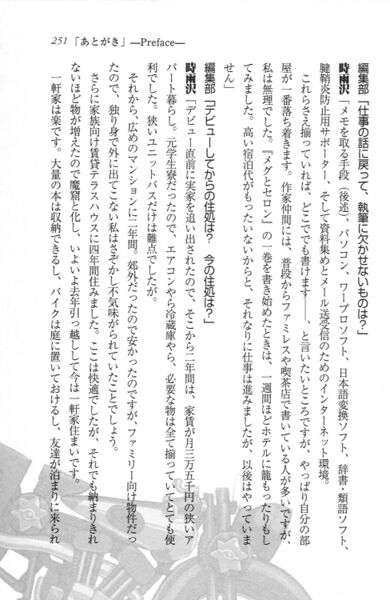 251 「あとがき」―Preface―
編集部「仕事の話に戻って、執筆に欠かせないものは？」
時雨沢「メモを取る手段（後述）、パソコン、ワープロソフト、日本語変換ソフト、辞書・類語ソフト、
腱鞘炎防止用サポーター、そして資料集めとメール送受信のためのインターネット環境。
これらさえ揃っていれば、どこでも書けます――、と言いたいところですが、やっぱり自分の部
屋が一番落ち着きます。作家仲間には、普段からファミレスや喫茶店で書いている人が多いですが、
私は無理でした。『メグとセロン』の一巻を書き始めたときは、一週間ほどホテルに籠もったりもし
てみました。高い宿泊代がもったいないからと、それなりに仕事は進みましたが、以後はやっていま
せん」
編集部「デビューしてからの住処は？　今の住処は？」
時雨沢「デビュー直前に実家を追い出されたので、そこから二年間は、家賃が月三万五千円の狭いア
パート暮らし。元学生寮だったので、エアコンやら冷蔵庫やら、必要な物は全て揃っていてとても便
利でした。狭いユニットバスだけは難点でしたが。
それから、広めのマンションに二年間。郊外だったので安かったのですが、ファミリー向け物件だっ
たので、独り身で外に出てこない私はさぞかし不気味がられていたことでしょう。
さらに家族向け賃貸テラスハウスに四年間住みました。ここは快適でしたが、それでも納まりきれ
ないほど物が増えたので魔窟と化し、いよいよ去年引っ越しして今は一軒家住まいです。
一軒家は楽です。大量の本は収納できるし、バイクは庭に置いておけるし、友達が泊まりに来られ